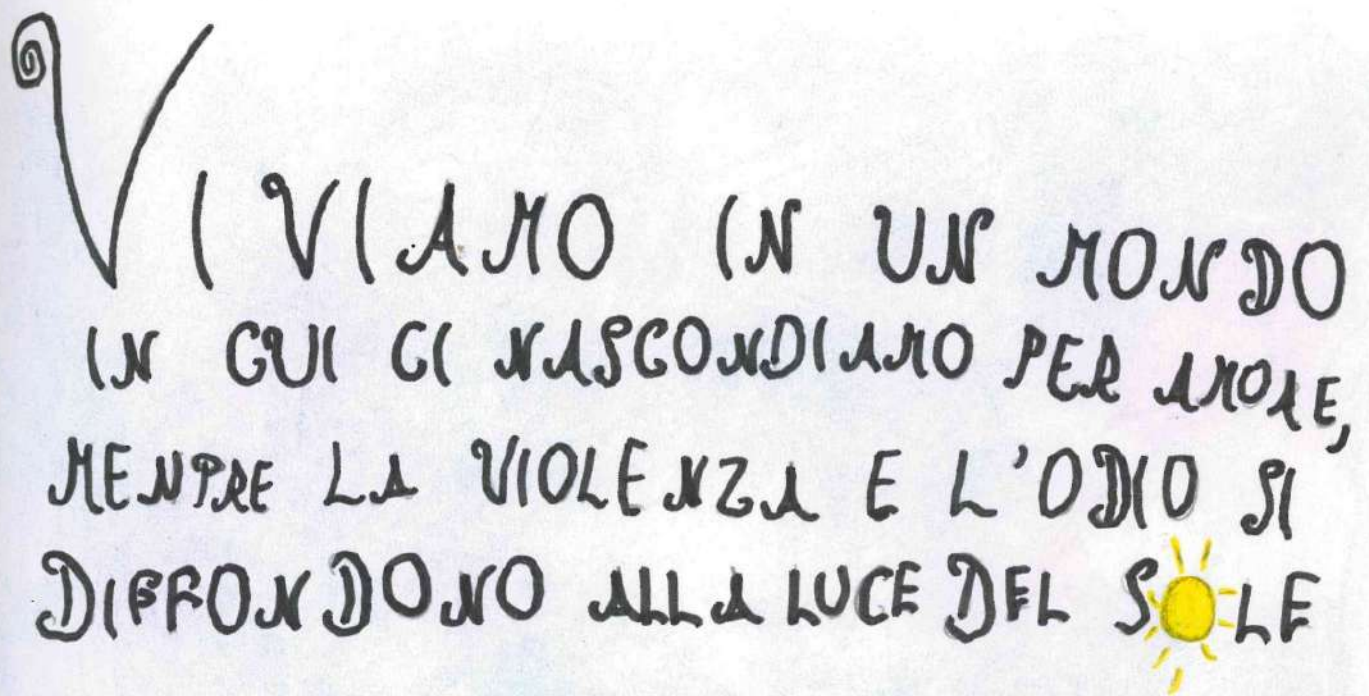 VIVIAMO IN UN MONDO
IN CUI CI NASCONDIAMO PER AMORE,
MENTRE LA VIOLENZA E L'ODIO SI
DIFFONDONO ALLA LUCE DEL SOLE